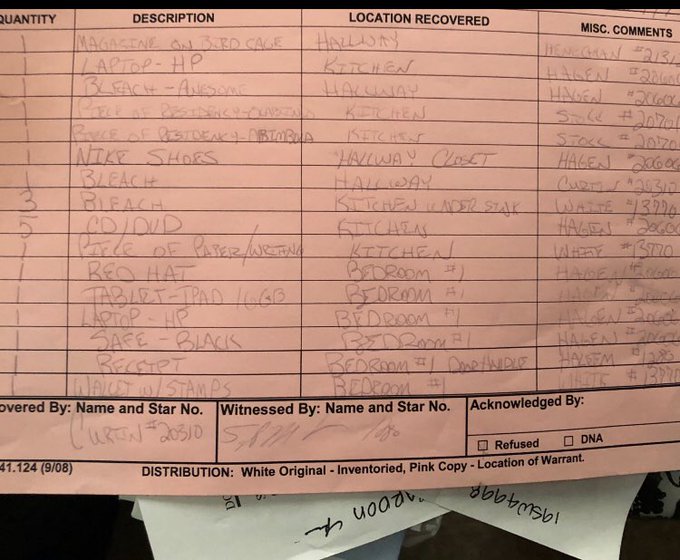 QUANTITY DESCRIPTION LOCATION RECOVERED MISC. COMMENTS
1 MAGASINE ON BIRD CAGE HALLWAY
1 LAPTOP - HP KITCHEN HAGEN #20606
1 BLEACH - AWESOME HALLWAY HAGEN #20606
1 PIECE OF RESIDENCY - KITCHEN STOCK #20701
1 PIECE OF RESIDENCY - ABIMBOLA KITCHEN STOCK #20701
1 NIKE SHOES HALLWAY CLOSET HAGEN #20606
1 BLEACH HALLWAY CURTIN #20310
3 BLEACH KITCHEN UNDER SINK WHITE #13770
5 CD/DVD KITCHEN HAGEN #20606
1 PIECE OF PAPER/WRITING KITCHEN WHITE #13770
1 RED HAT BEDROOM #1 HAGEN
1 TABLET - IPAD 16GB BEDROOM #1
1 LAPTOP - HP BEDROOM #1 HAGEN #20606
1 SAFE - BLACK BEDROOM #1 HAGEN
1 RECEIPT BEDROOM #1
1 WALLET W/ STAMPS BEDROOM #1 WHITE #13770
overed By: Name and Star No. Witnessed By: Name and Star No. Acknowledged By:
CURTIN #20310
Refused DNA
41.124 (9/08) DISTRIBUTION: White Original - Inventoried, Pink Copy - Location of Warrant.